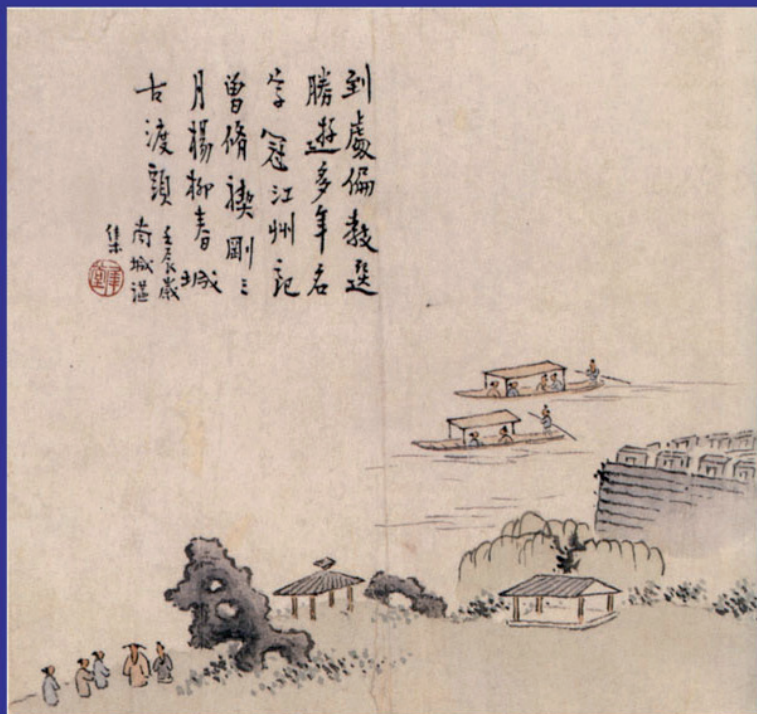 到處偏教選
勝遊多年名
字冠江州記
曾脩禊剛三
月楊柳春城
古渡頭
壬辰歲
尚城
集